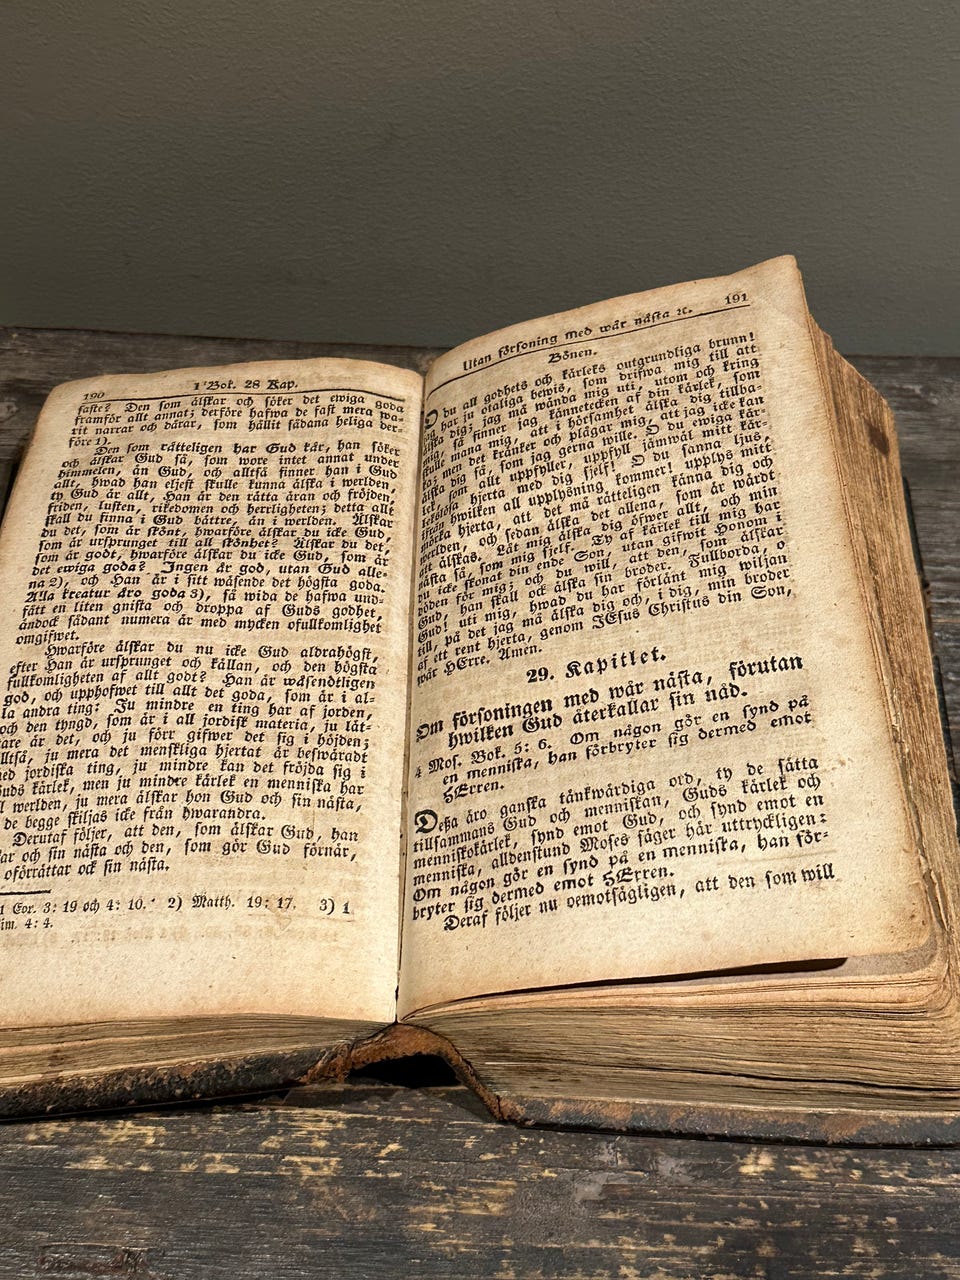 190
1 Bok. 28 Kap.
faste? Den som älskar och söker det ewiga goda
framför allt annat; derföre hafwa de fast mera wa-
rit narrar och dårar, som hållit sådana heliga der-
före 1).
Den som rätteligen har Gud kär, han söker
och älskar Gud så, som wore intet annat under
himmelen, än Gud, och alltså finner han i Gud
allt, hwad han eljest skulle kunna älska i werlden,
ty Gud är allt, Han är den rätta äran och fröjden,
friden, lusten, rikedomen och herrligheten; detta allt
skall du finna i Gud bättre, än i werlden. Älskar
du det, som är skönt, hwarföre älskar du icke Gud,
som är ursprunget till all skönhet? Älskar du det,
som är godt, hwarföre älskar du icke Gud, som är
det ewiga goda? Ingen är god, utan Gud alle-
na 2), och Han är i sitt wäsende det högsta goda.
Alla kreatur äro goda 3), så wida de hafwa und-
fått en liten gnista och droppa af Guds godhet,
ändock sådant numera är med mycken ofullkomlighet
omgifwet.
Hwarföre älskar du nu icke Gud aldrahögst,
efter Han är ursprunget och källan, och den högsta
fullkomligheten af allt godt? Han är wäsendtligen
god, och upphofwet till allt det goda, som är i al-
la andra ting: Ju mindre en ting har af jorden,
och den tyngd, som är i all jordisk materia, ju lät-
are är det, och ju förr gifwer det sig i höjden;
lltså, ju mera det menskliga hjertat är beswäradt
ned jordiska ting, ju mindre kan det fröjda sig i
uds kärlek, men ju mindre kärlek en menniska har
l werlden, ju mera älskar hon Gud och sin nästa,
de begge skiljas icke från hwarandra.
Derutaf följer, att den, som älskar Gud, han
ar och sin nästa och den, som gör Gud förnär,
oförrättar ock sin nästa.
1 Cor. 3: 19 och 4: 10. 2) Matth. 19: 17. 3) 1
im. 4: 4.
Utan försoning med wår nästa ꝛc.
191
Bönen.
O du all godhets och kärleks outgrundliga brunn!
jag har ju otaliga bewis, som drifwa mig till att
älska dig; jag må wända mig uti, utom och kring
mig, så finner jag kännetecken af din kärlek, som
skulle mana mig, att i hörsamhet älska dig tillba-
ka; men det kränker och plågar mig, att jag icke kan
älska dig så, som jag gerna wille. O du ewiga kär-
lek, som allt uppfyller, uppfyll jämwäl mitt kär-
lekslösa hjerta med dig sjelf! O du sanna ljus,
ifrån hwilken all upplysning kommer! upplys mitt
mörka hjerta, att det må rätteligen känna dig och
werlden, och sedan älska det allena, som är wärdt
att älskas. Låt mig älska dig öfwer allt, och min
nästa så, som mig sjelf. Ty af kärlek till mig har
du icke skonat din ende Son, utan gifwit Honom i
döden för mig; och du will, att den, som älskar
Gud, han skall ock älska sin broder. Fullborda, o
Gud! uti mig, hwad du har förlänt mig wiljan
till, på det jag må älska dig och, i dig, min broder
af ett rent hjerta, genom JEsus Christus din Son,
wår HErre. Amen.
29. Kapitlet.
Om försoningen med wår nästa, förutan
hwilken Gud återkallar sin nåd.
4 Mos. Bok. 5: 6. Om någon gör en synd på
en menniska, han förbryter sig dermed emot
HErren.
Deßa äro ganska tänkwärdiga ord, ty de sätta
tillsammans Gud och menniskan, Guds kärlek och
menniskokärlek, synd emot Gud, och synd emot en
menniska, alldenstund Moses säger här uttryckligen:
Om någon gör en synd på en menniska, han för-
bryter sig dermed emot HErren.
Deraf följer nu oemotsägligen, att den som will